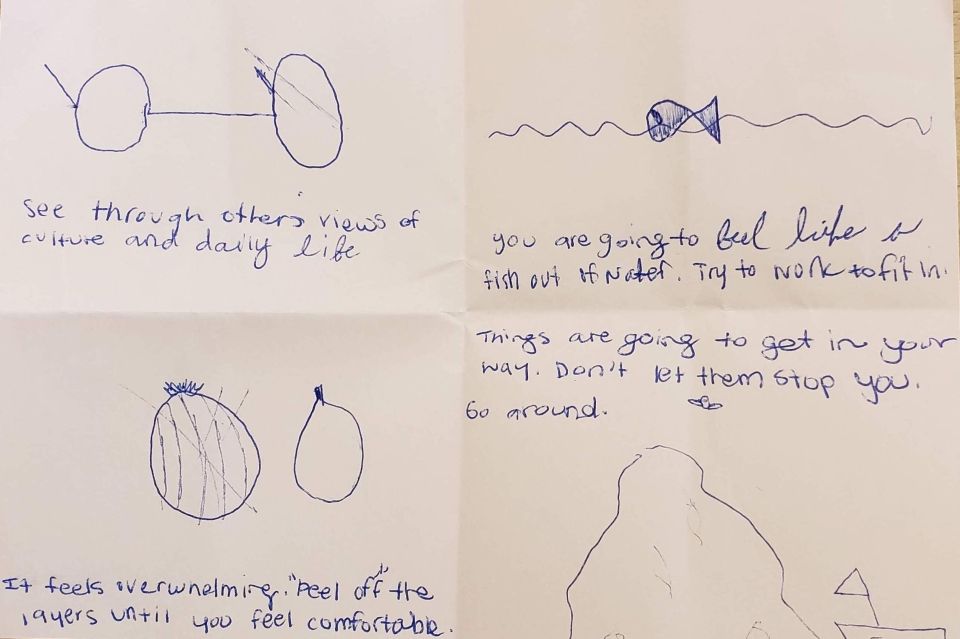 See through others views of
culture and daily life
you are going to feel like a
fish out of water. Try to work to fit in.
It feels overwhelming. "Peel off" the
layers until you feel comfortable.
Things are going to get in your
way. Don't let them stop you.
Go around.